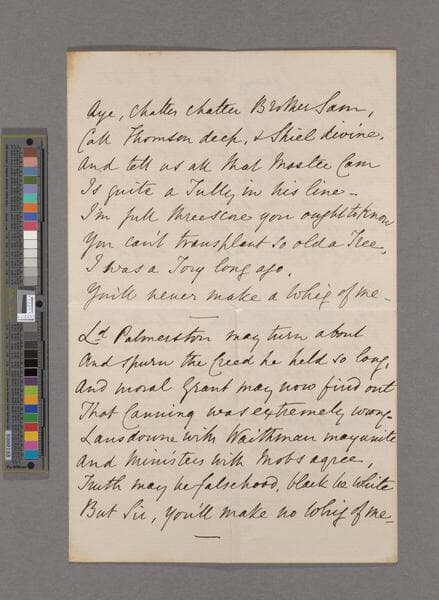 Aye, chatter chatter Brother Sam,
Call Thomson deep, & Shiel divine,
And tell us all that Master Cam
Is quite a Tully in his line –
I'm full threescore you ought to know
You can't transplant so old a Tree,
I was a Tory long ago,
You'll never make a Whig of me –
Ld. Palmerston may turn about
And spurn the Creed he held so long,
And moral Grant may now find out
That Canning was extremely wrong –
Lansdowne with Waithman may unite
And Ministers with Mobs agree,
Truth may be falsehood, black be white
But Sir, you'll make no Whig of me –